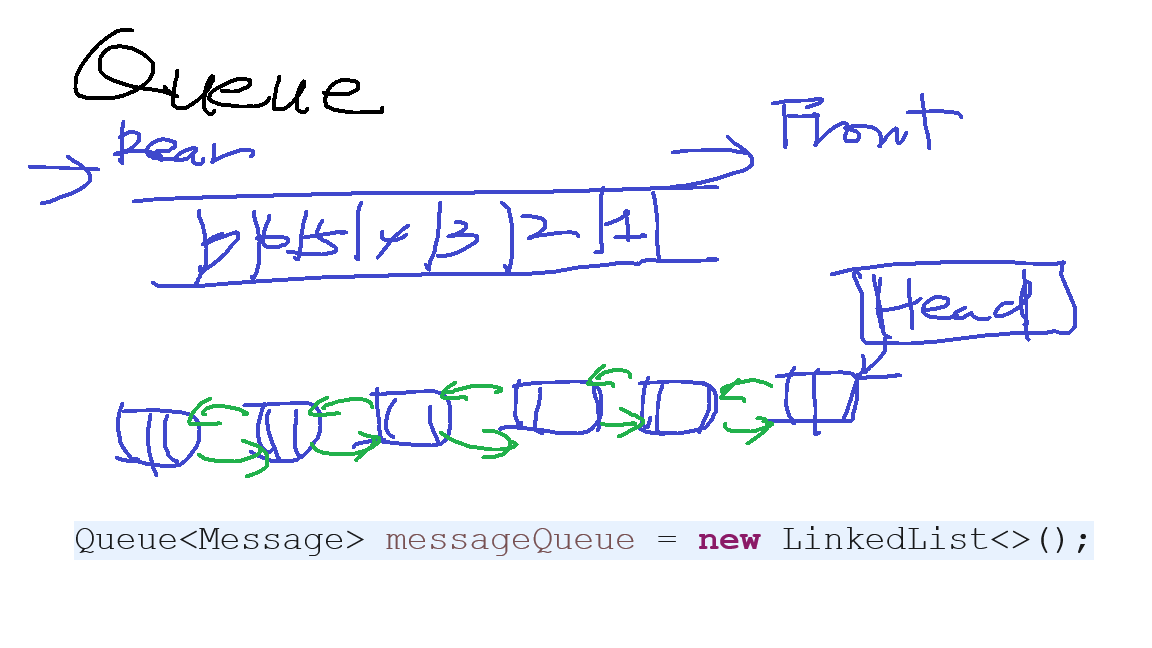 Queue
Rear
Front
7 6 5 4 3 2 1
Head
Queue<Message> messageQueue = new LinkedList<>();